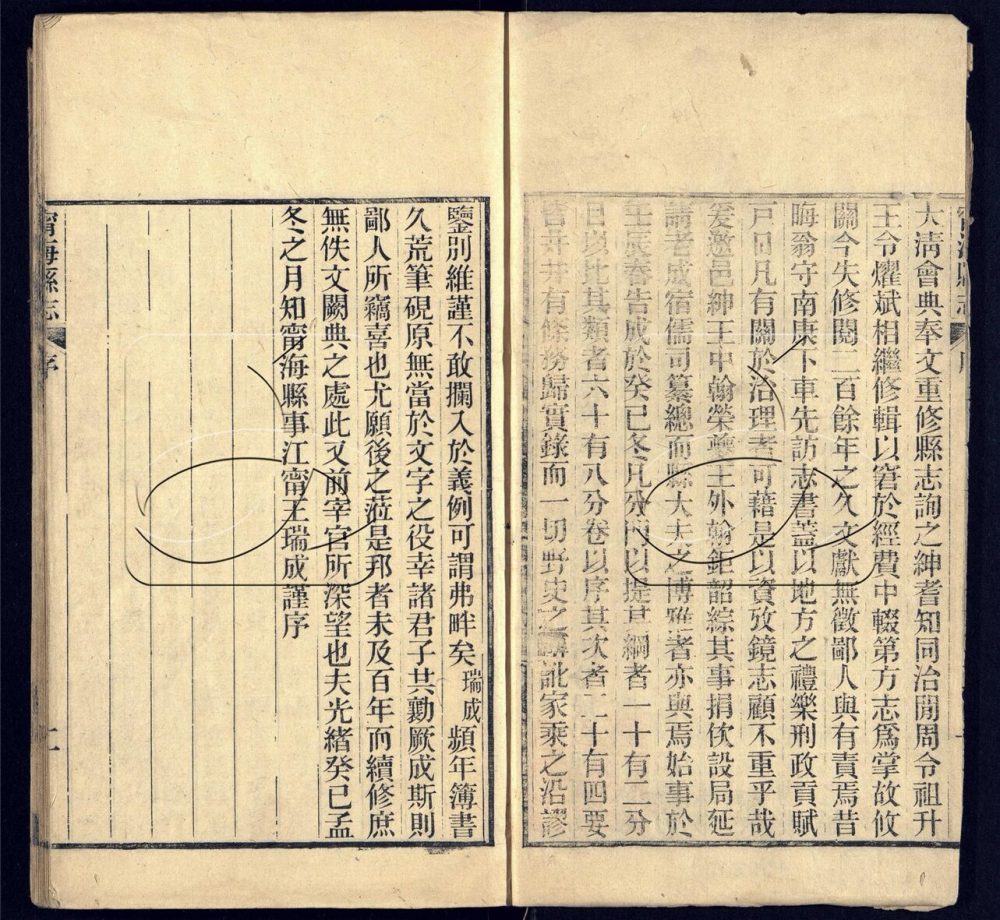 大淸會典奉文重修縣志詢之紳耆知同治閒周令祖升
王令燿斌相繼修輯以窘於經費中輟第方志爲掌故攸
關今失修閱二百餘年之久文獻無徵鄙人與有責焉昔
晦翁守南康下車先訪志書蓋以地方之禮樂刑政貢賦
戸口凡有關於治理者可藉是以資攷鏡志顧不重乎哉
爰邀邑紳王中翰榮夔王外翰鉅韶綜其事捐伙設局延
請耆成宿儒司纂總而縣大夫之博雅者亦與焉始事於
壬辰春告成於癸巳冬凡分門以提其綱者一十有二分
目以比其類者六十有八分卷以序其次者二十有四要
皆井井有條務歸實錄而一切野史之 訛家乘之沿謬
寧海縣志 序
鑒別維謹不敢攔入於義例可謂弗畔矣瑞成頻年簿書
久荒筆硯原無當於文字之役幸諸君子共勷厥成斯則
鄙人所竊喜也尤願後之蒞是邦者未及百年而續修庶
無佚文闕典之處此又前宰官所深望也夫光緒癸巳孟
冬之月知甯海縣事江甯王瑞成謹序
甯海縣志 序 二